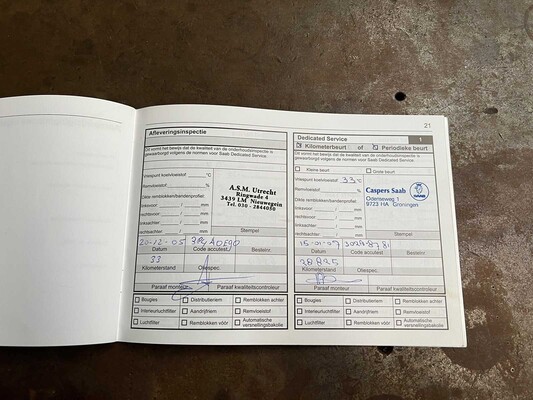 21
Afleveringsinspectie
Dit vormt het bewijs dat de kwaliteit van de onderhoudsinspectie is
gewaarborgd volgens de normen voor Saab Dedicated Service.
Vriespunt koelvloeistof °C
Remvloeistof %
Dikte remblokken/bandenprofiel:
linksvoor: / mm
rechtsvoor: / mm
linksachter: / mm
rechtsachter: / mm
A.S.M. Utrecht
Ringwade 4
3439 LM Nieuwegein
Tel. 030 - 2844050
Stempel
20-12-05
Datum Code accutest Bestelnr.
33
Kilometerstand Oliespec.
Paraaf monteur Paraaf kwaliteitscontroleur
Bougies Distributieriem Remblokken achter
Interieurluchtfilter Aandrijfriem Remvloeistof
Luchtfilter Remblokken vóór Automatische
versnellingsbakolie
Dedicated Service 1
Kilometerbeurt of Periodieke beurt
Dit vormt het bewijs dat de kwaliteit van de onderhoudsinspectie is
gewaarborgd volgens de normen voor Saab Dedicated Service.
Kleine beurt Grote beurt
Vriespunt koelvloeistof 33 °C
Remvloeistof %
Dikte remblokken/bandenprofiel:
linksvoor: / mm
rechtsvoor: / mm
linksachter: / mm
rechtsachter: / mm
Caspers Saab
Osloweg 1
9723 HA Groningen
Stempel
15-01-07
Datum Code accutest Bestelnr.
28825
Kilometerstand Oliespec.
Paraaf monteur Paraaf kwaliteitscontroleur
Bougies Distributieriem Remblokken achter
Interieurluchtfilter Aandrijfriem Remvloeistof
Luchtfilter Remblokken vóór Automatische
versnellingsbakolie